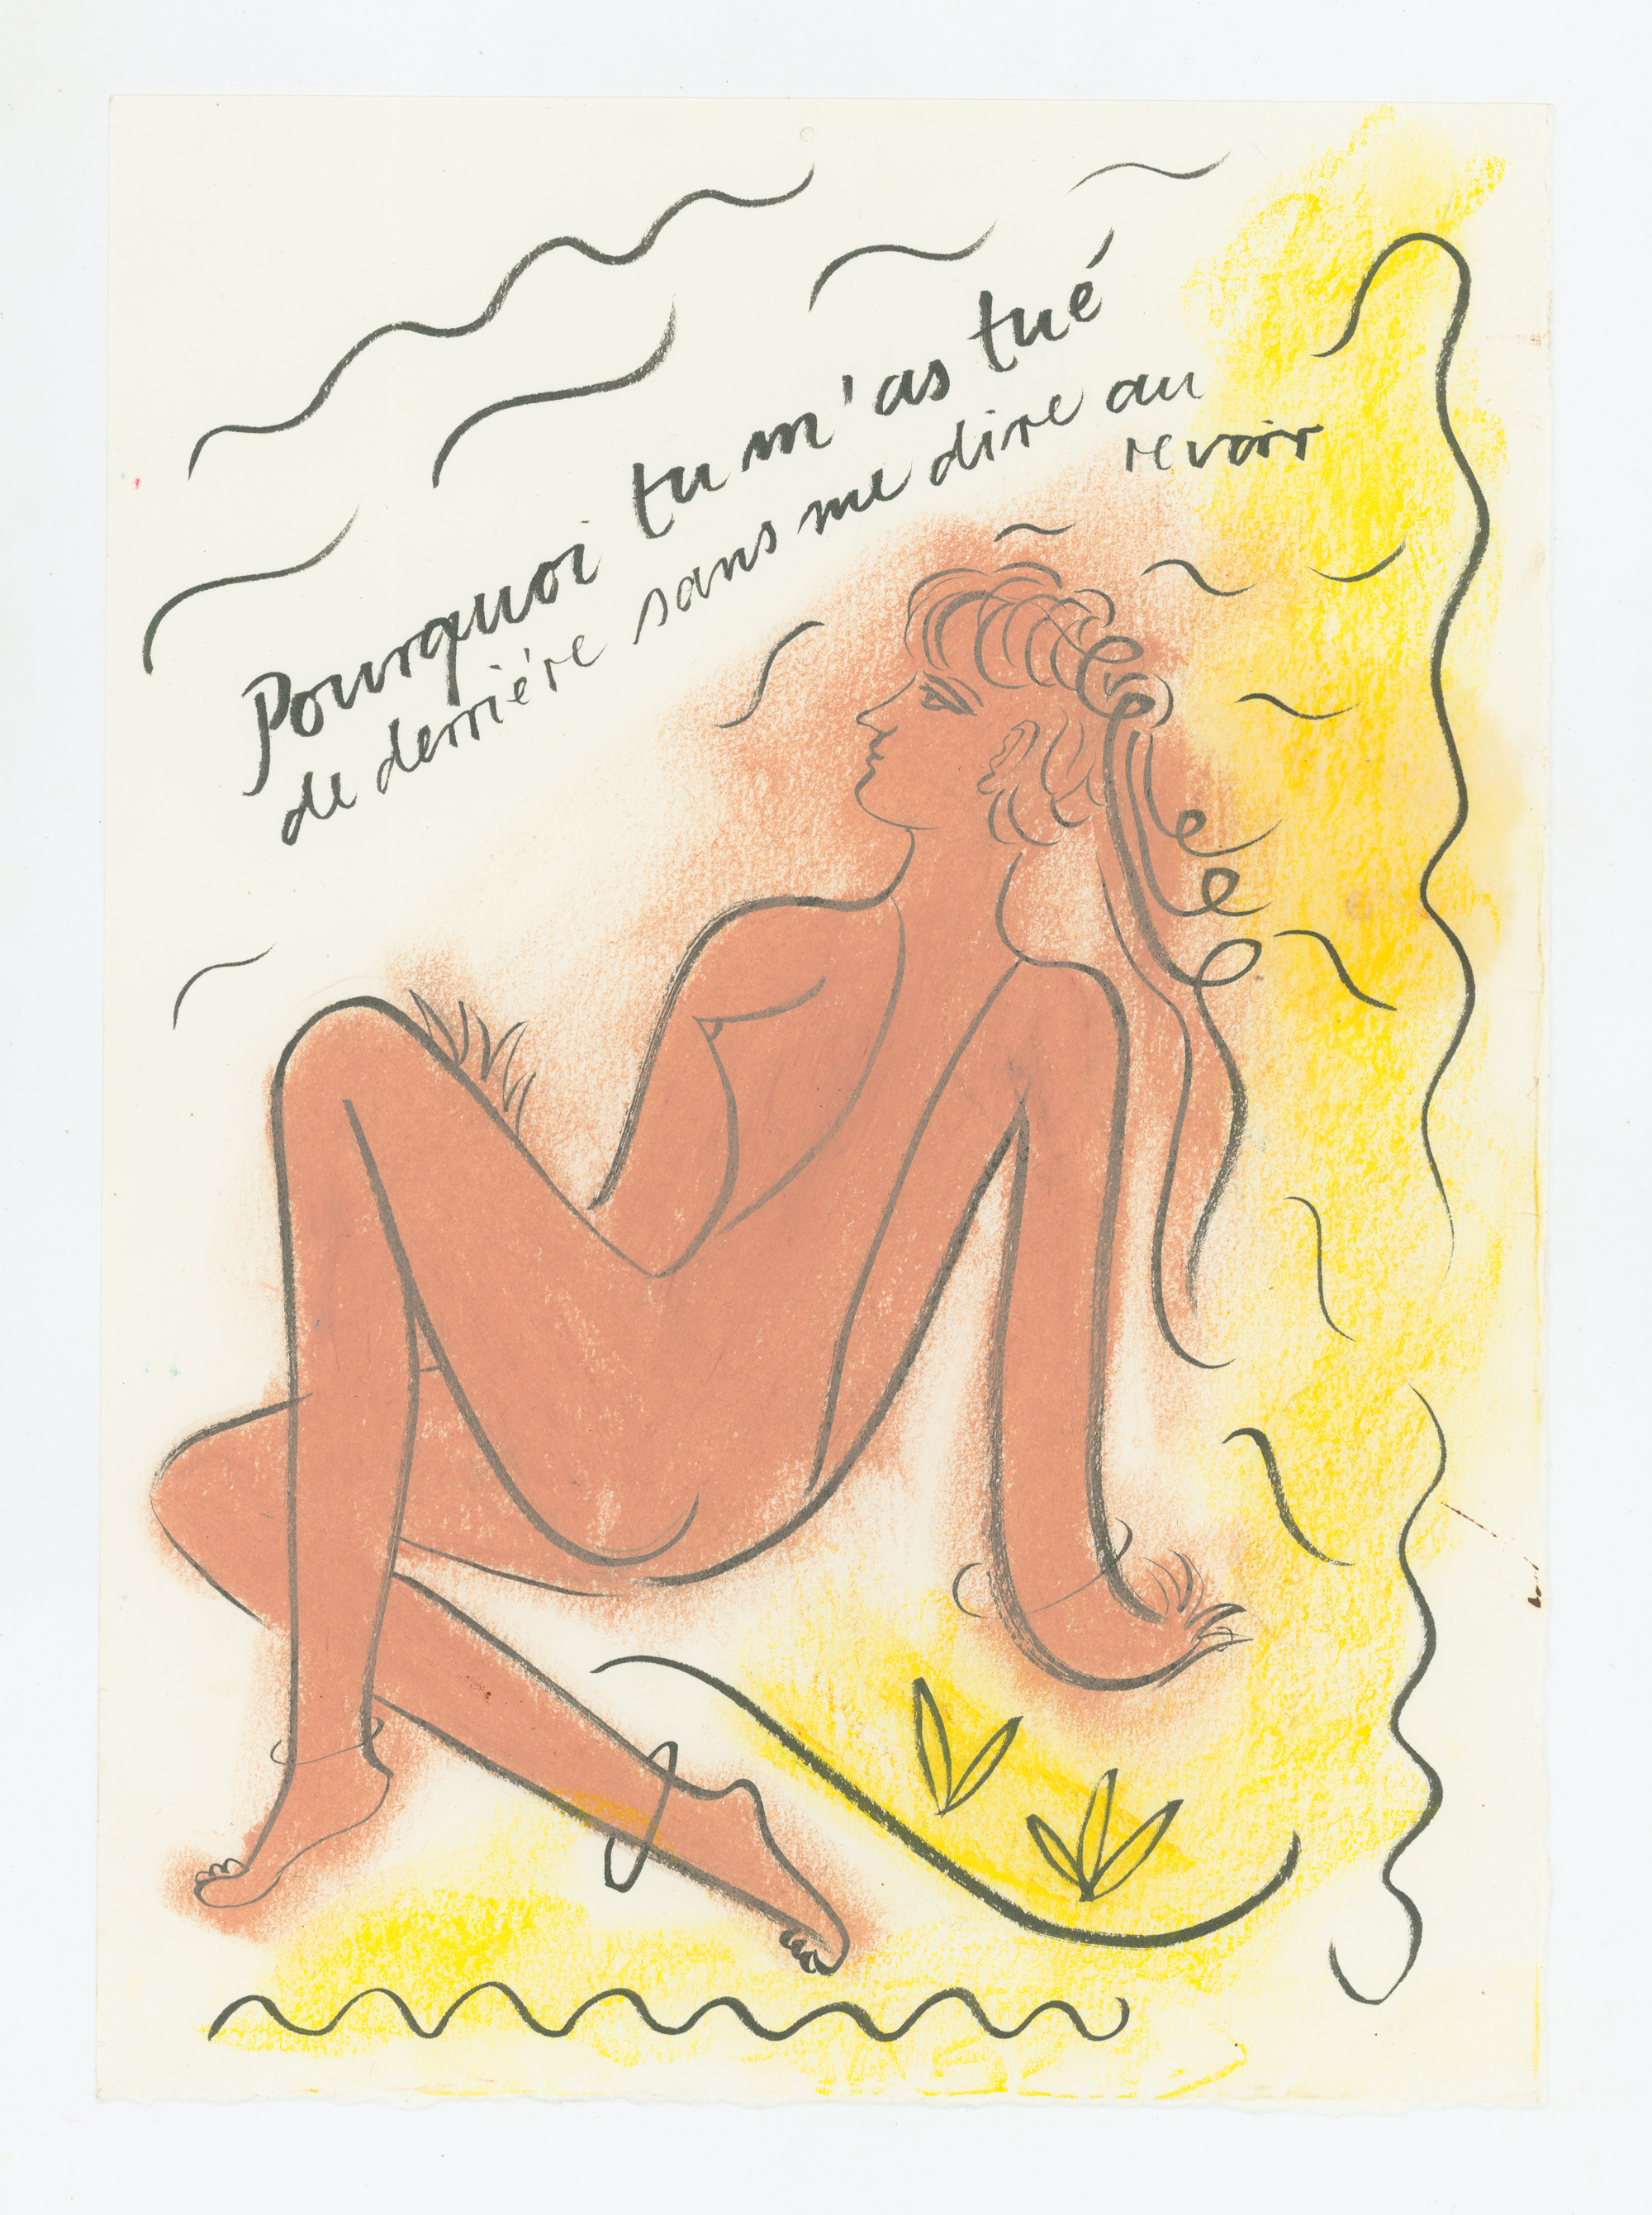 Pourquoi tu m'as tué
de derriére sans me dire au
revoir